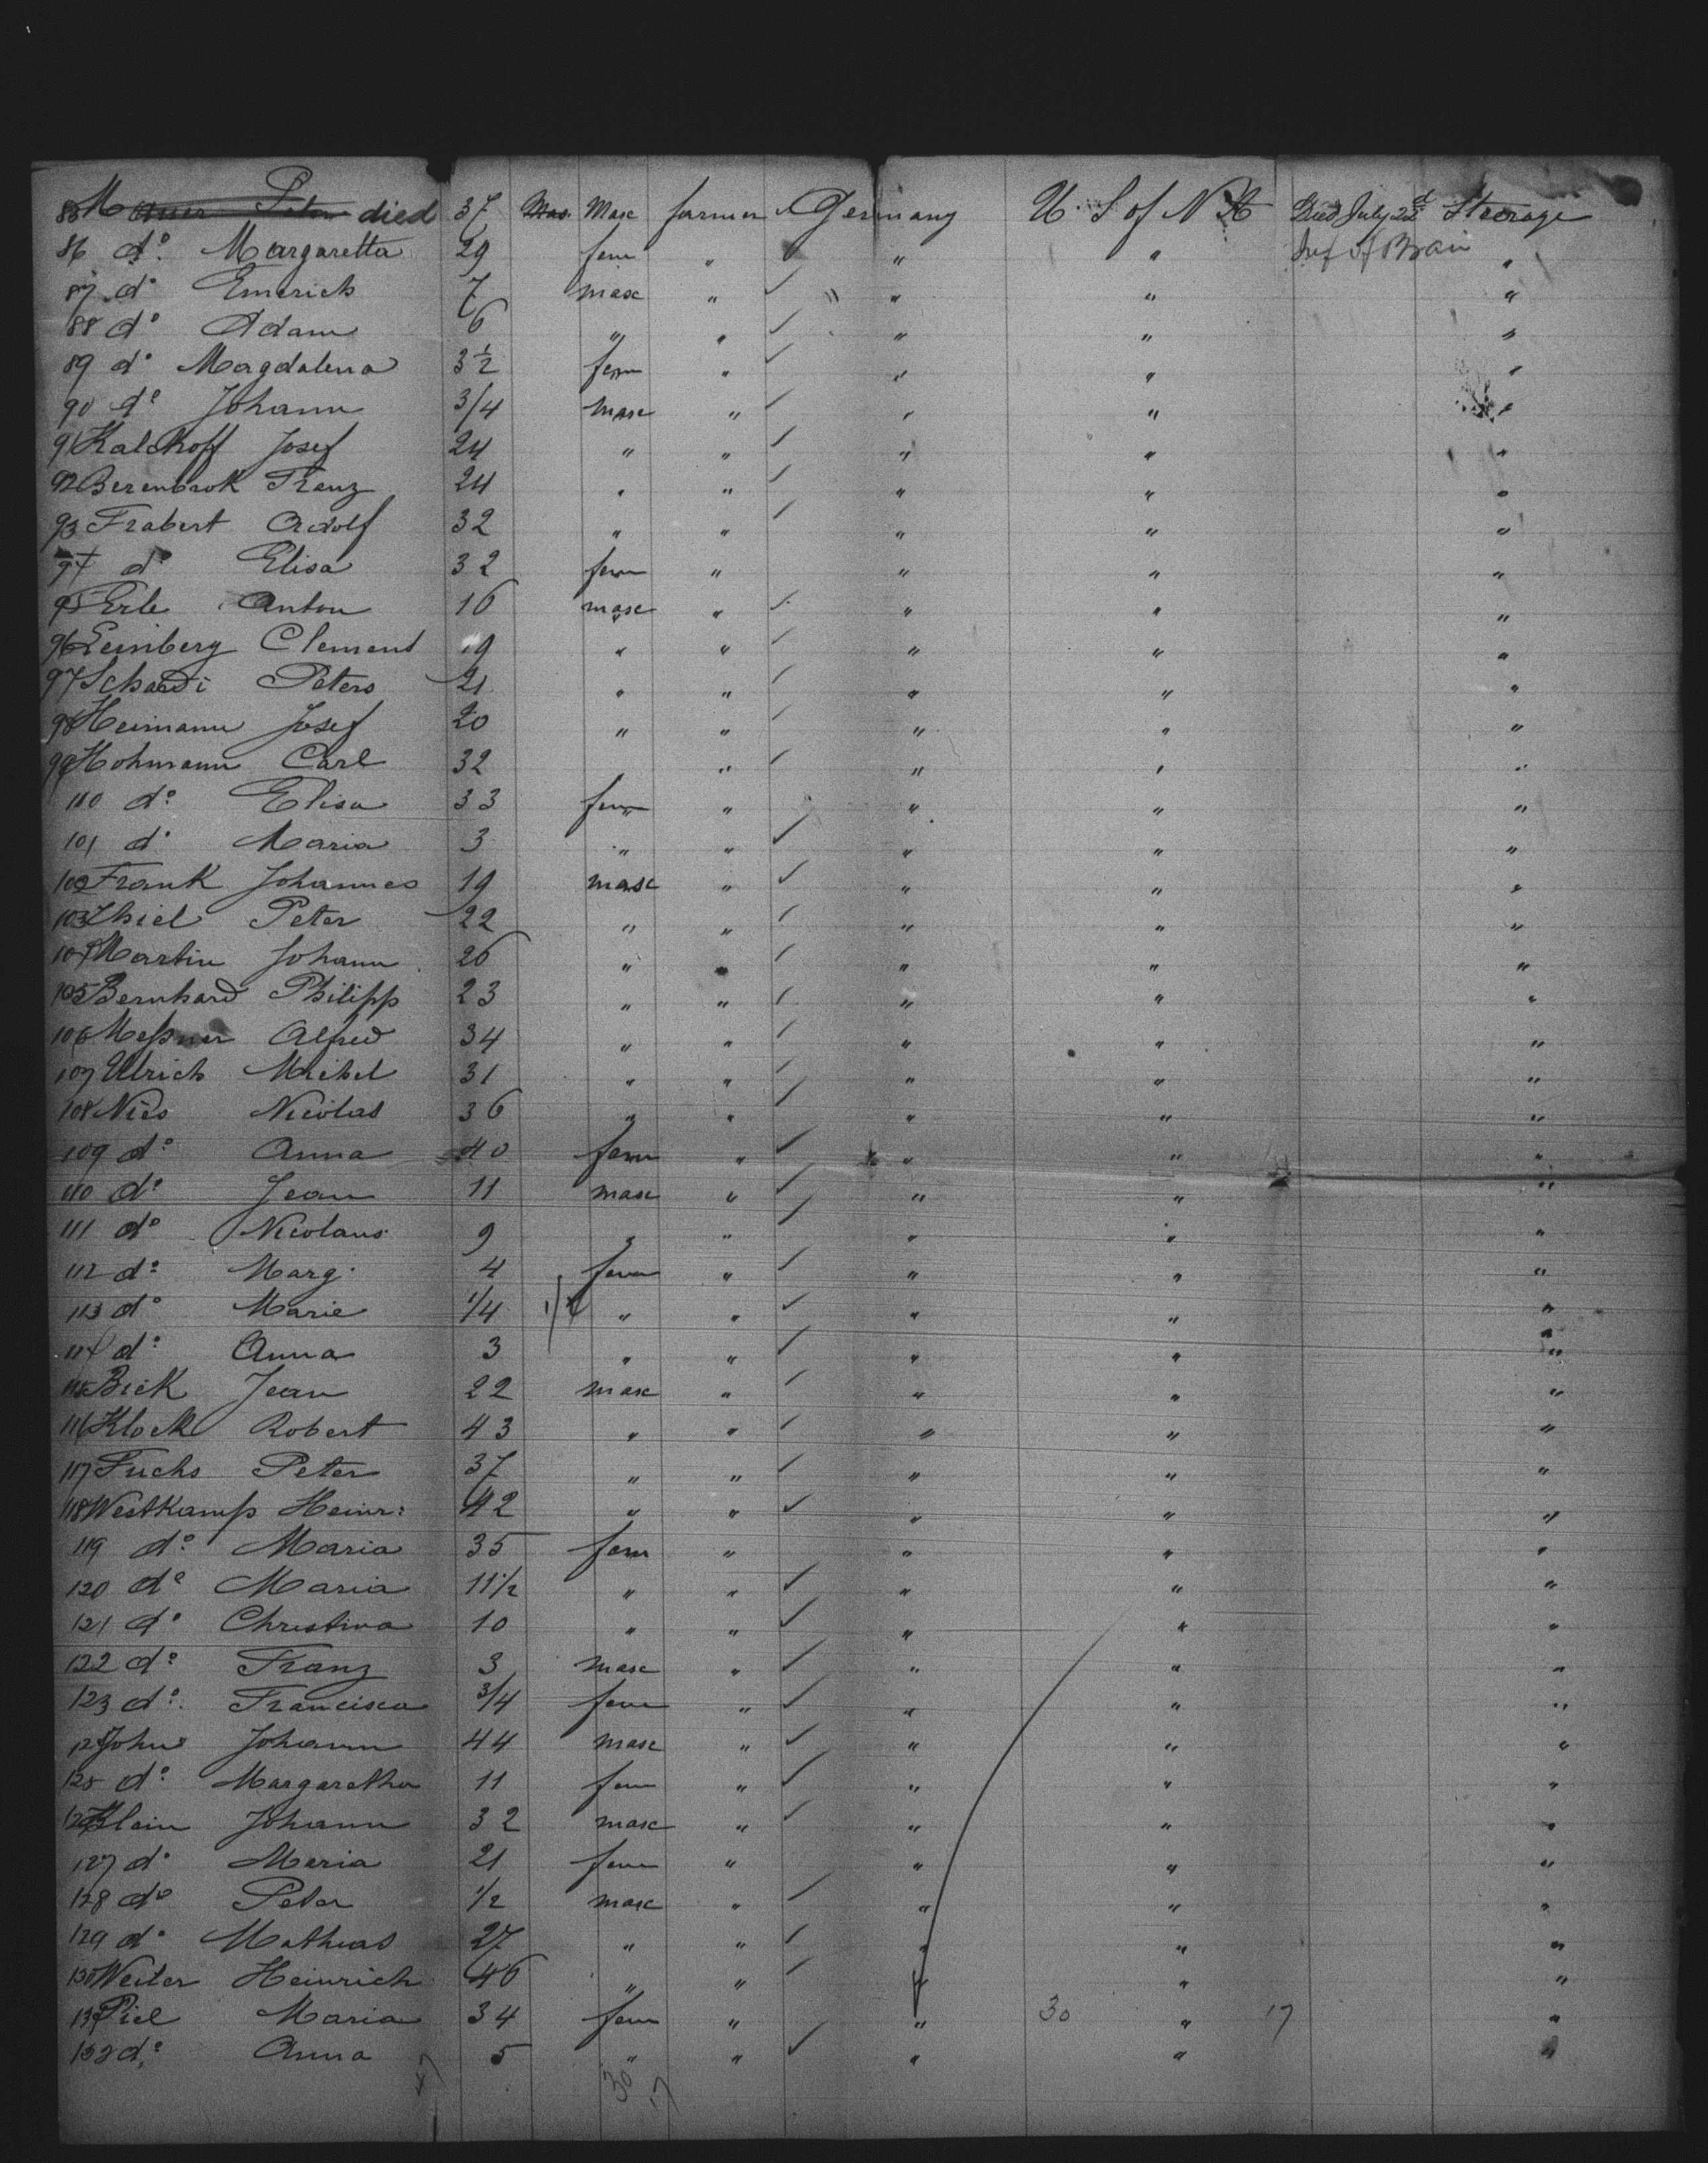 85 Mauer Peter died 37 Mas. Masc farmer Germany U. S of N A Died July 22d Steerage
86 do Margaretta 29 fem " " " Inf of Brain "
87 do Emerich 7 masc " ✓ " " "
88 do Adam 6 " " ✓ " " "
89 do Magdalena 3 1/2 fem " ✓ " " "
90 do Johann 3/4 masc " ✓ " " "
91 Kalckhoff Josef 24 " " ✓ " " "
92 Berenbrok Franz 24 " " ✓ " " "
93 Frabert Adolf 32 " " ✓ " " "
94 do Elisa 32 fem " " " "
95 Erle Anton 16 masc " ✓ " " "
96 Leinberg Clemens 19 " " ✓ " " "
97 Schardi Peters 21 " " ✓ " " "
98 Heimann Josef 20 " " ✓ " " "
99 Hohmann Carl 32 " ✓ " " "
100 do Elisa 33 fem " " " "
101 do Maria 3 " " ✓ " " "
102 Frank Johannes 19 masc " ✓ " " "
103 Thiel Peter 22 " " ✓ " " "
104 Martin Johann 26 " " ✓ " " "
105 Bernhard Philipp 23 " " ✓ " " "
106 Meßner Alfred 34 " " ✓ " " "
107 Ulrich Michel 31 " " ✓ " " "
108 Nies Nicolas 36 " " ✓ " " "
109 do Anna 40 fem " ✓ " " "
110 do Jean 11 masc " ✓ " " "
111 do Nicolaus 9 " " ✓ " " "
112 do Marg. 4 fem " ✓ " " "
113 do Marie 1/4 " " ✓ " " "
114 do Anna 3 " " ✓ " " "
115 Bick Jean 22 masc " ✓ " " "
116 Klock Robert 43 " " ✓ " " "
117 Fuchs Peter 37 " " ✓ " " "
118 Westkamp Heinr: 42 " " ✓ " " "
119 do Maria 35 fem " " " "
120 do Maria 11 1/2 " " ✓ " " "
121 do Christina 10 " " ✓ " " "
122 do Franz 3 masc " ✓ " " "
123 do Francisca 3/4 fem " ✓ " " "
124 John Johann 44 masc " ✓ " " "
125 do Margaretha 11 fem " ✓ " " "
126 Klein Johann 32 masc " ✓ " " "
127 do Maria 21 fem " " " "
128 do Peter 1/2 masc " ✓ " " "
129 do Mathias 27 " " ✓ " " "
130 Weiter Heinrich 46 " " ✓ " " "
131 Piel Maria 34 fem " " 30 " 17 "
132 do Anna 5 " " ✓ " " "
47 30 17